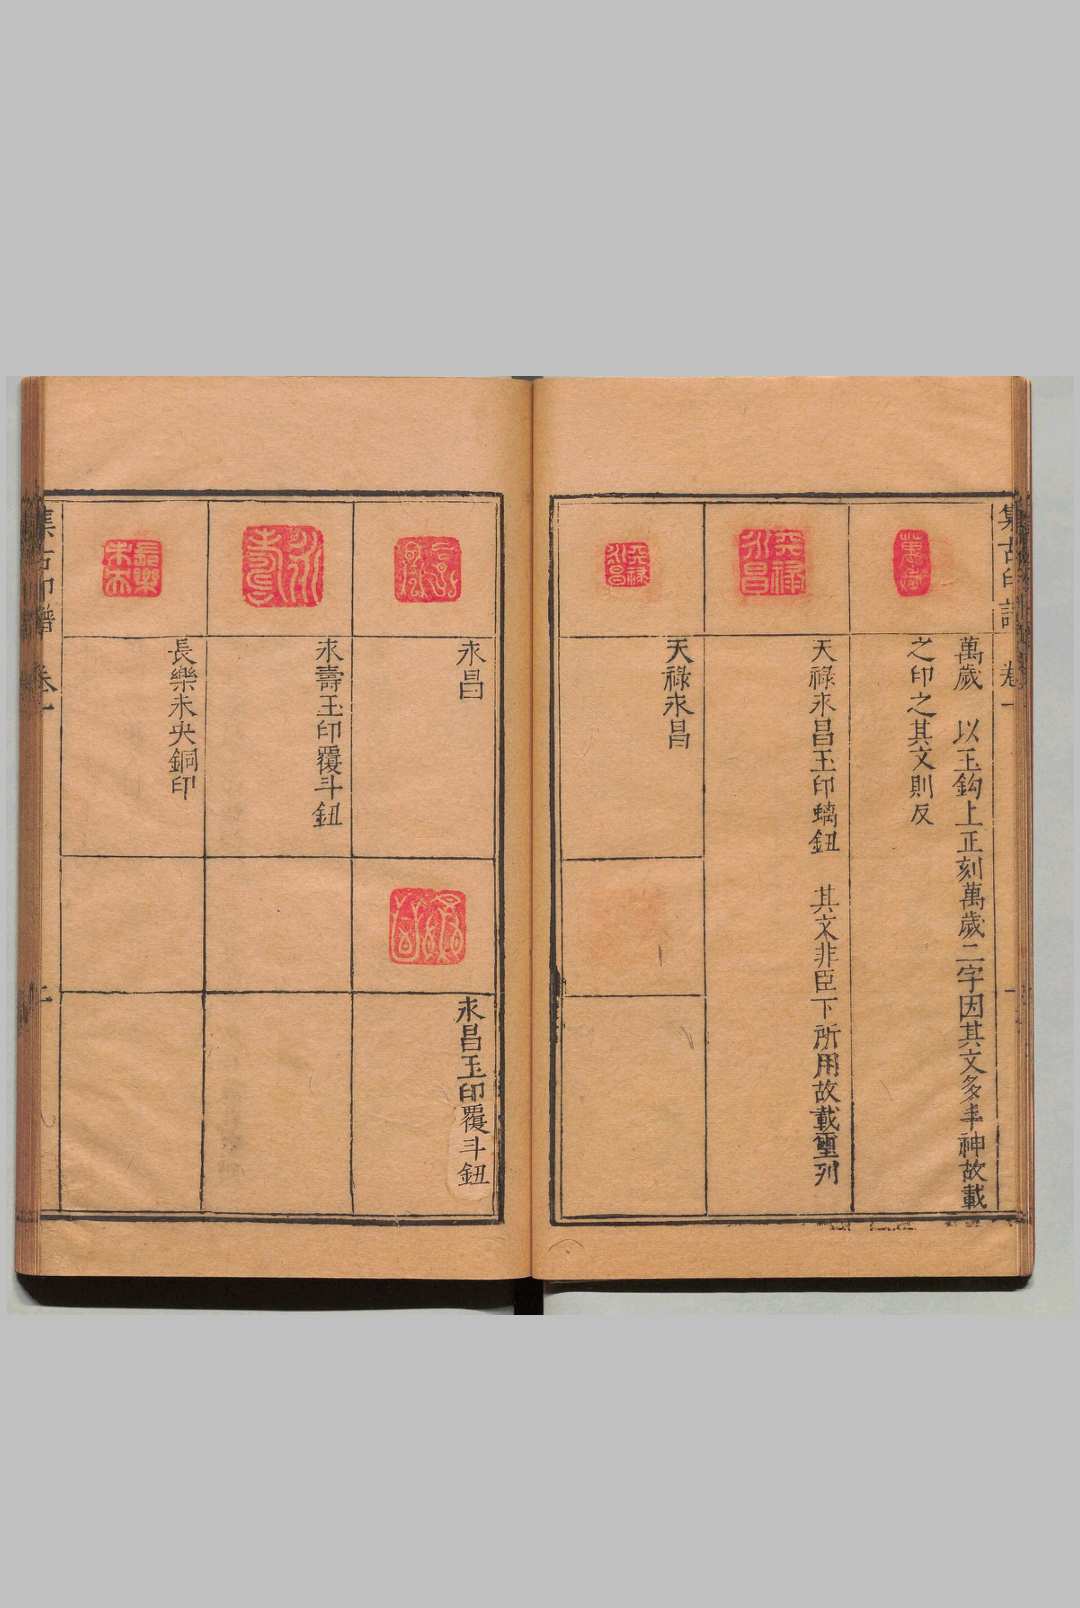 集古印譜 卷一
萬歲
萬歲　以玉鈎上正刻萬歲二字因其文多丰神故載
之印之其文則反
天祿永昌
天祿永昌玉印螭鈕　其文非臣下所用故載璽列
天祿永昌
天祿永昌
永昌
永昌玉印覆斗鈕
永壽
永壽玉印覆斗鈕
長樂未央
長樂未央銅印
集古印譜 卷一